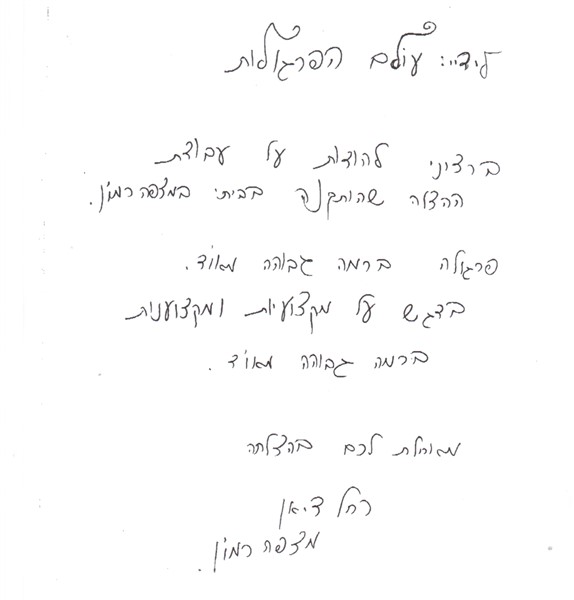 לידי: עולם הפרגולות
ברצוני להודות על עבודת
ההצלה שהותקנה בביתי במצפה רמון.
פרגולה ברמה גבוהה מאוד.
בדגש על מקצועיות ומקצוענות
ברמה גבוהה מאוד.
מאחלת לכם בהצלחה
רחל דיאן
מצפה רמון.